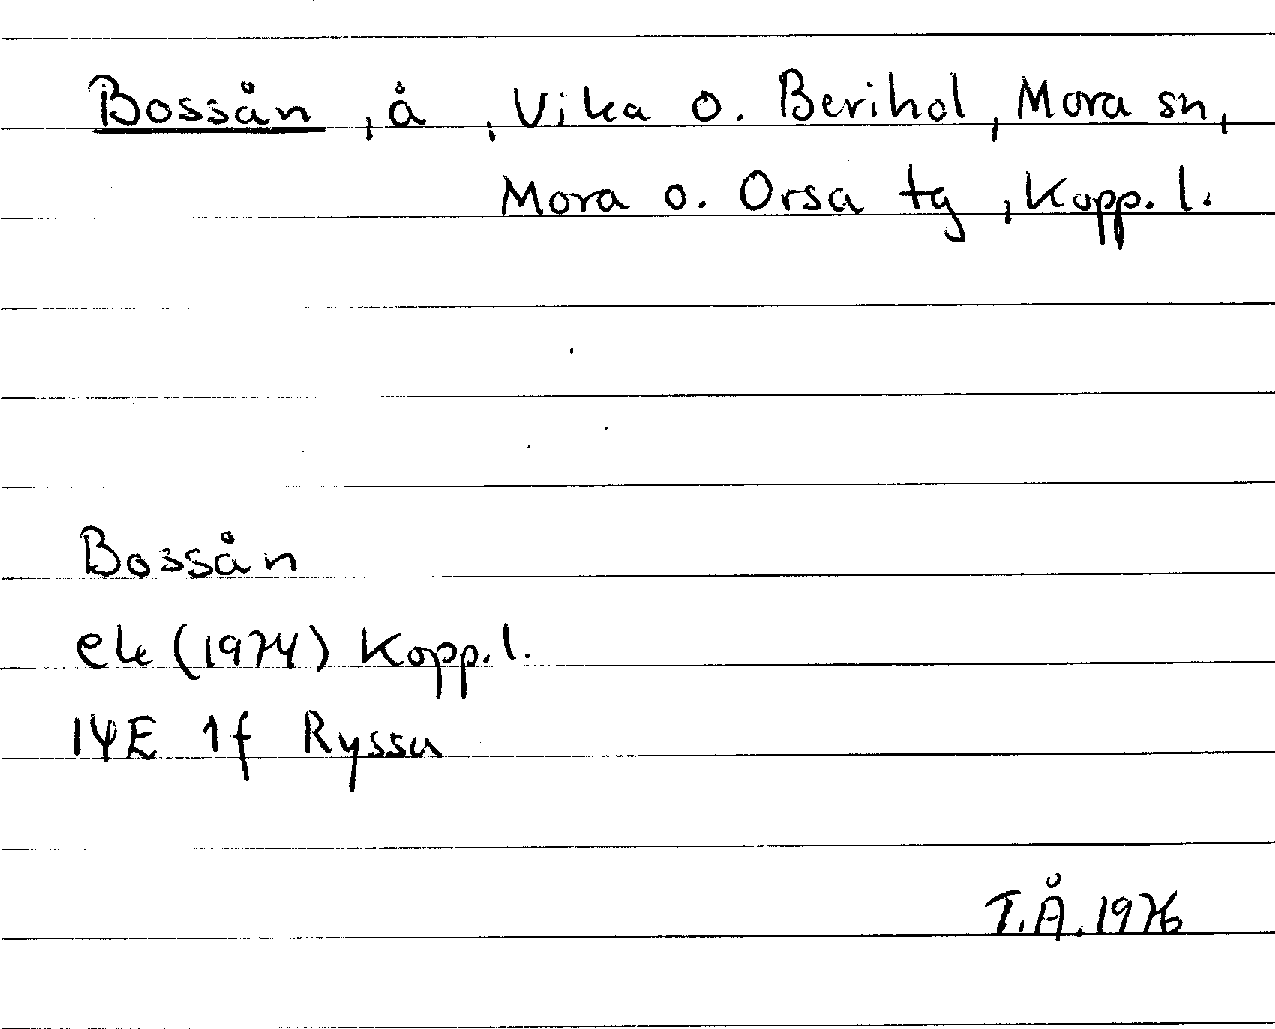 Bossån, å, Vika o. Berihol, Mora sn,
Mora o. Orsa tg, Kopp. l.
Bossån
ek (1974) Kopp. l.
14E 1f Ryssa
T.Å. 1976